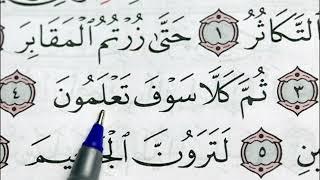 التَّكَاثُرُ ١ حَتَّىٰ زُرْتُمُ الْمَقَابِرَ
٣ ثُمَّ كَلَّا سَوْفَ تَعْلَمُونَ ٤
٥ لَتَرَوُنَّ الْجَحِيمَ